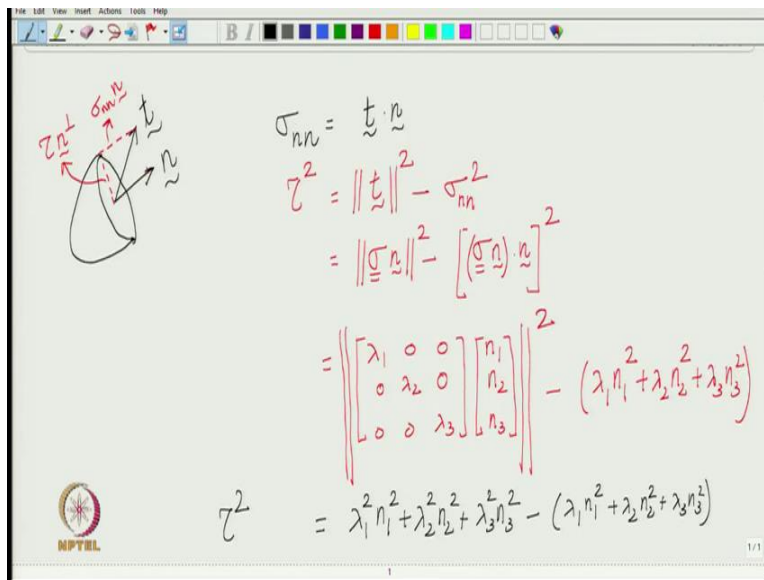 File Edit View Insert Actions Tools Help
B I
σ_nn n
τ n^⊥
t
n
σ_nn = t · n
τ² = ||t||² - σ_nn²
= ||σ n||² - [(σ n) · n]²
= ||[λ₁ 0 0; 0 λ₂ 0; 0 0 λ₃] [n₁; n₂; n₃]||² - (λ₁n₁² + λ₂n₂² + λ₃n₃²)
τ² = λ₁²n₁² + λ₂²n₂² + λ₃²n₃² - (λ₁n₁² + λ₂n₂² + λ₃n₃²)
NPTEL
1/1
1